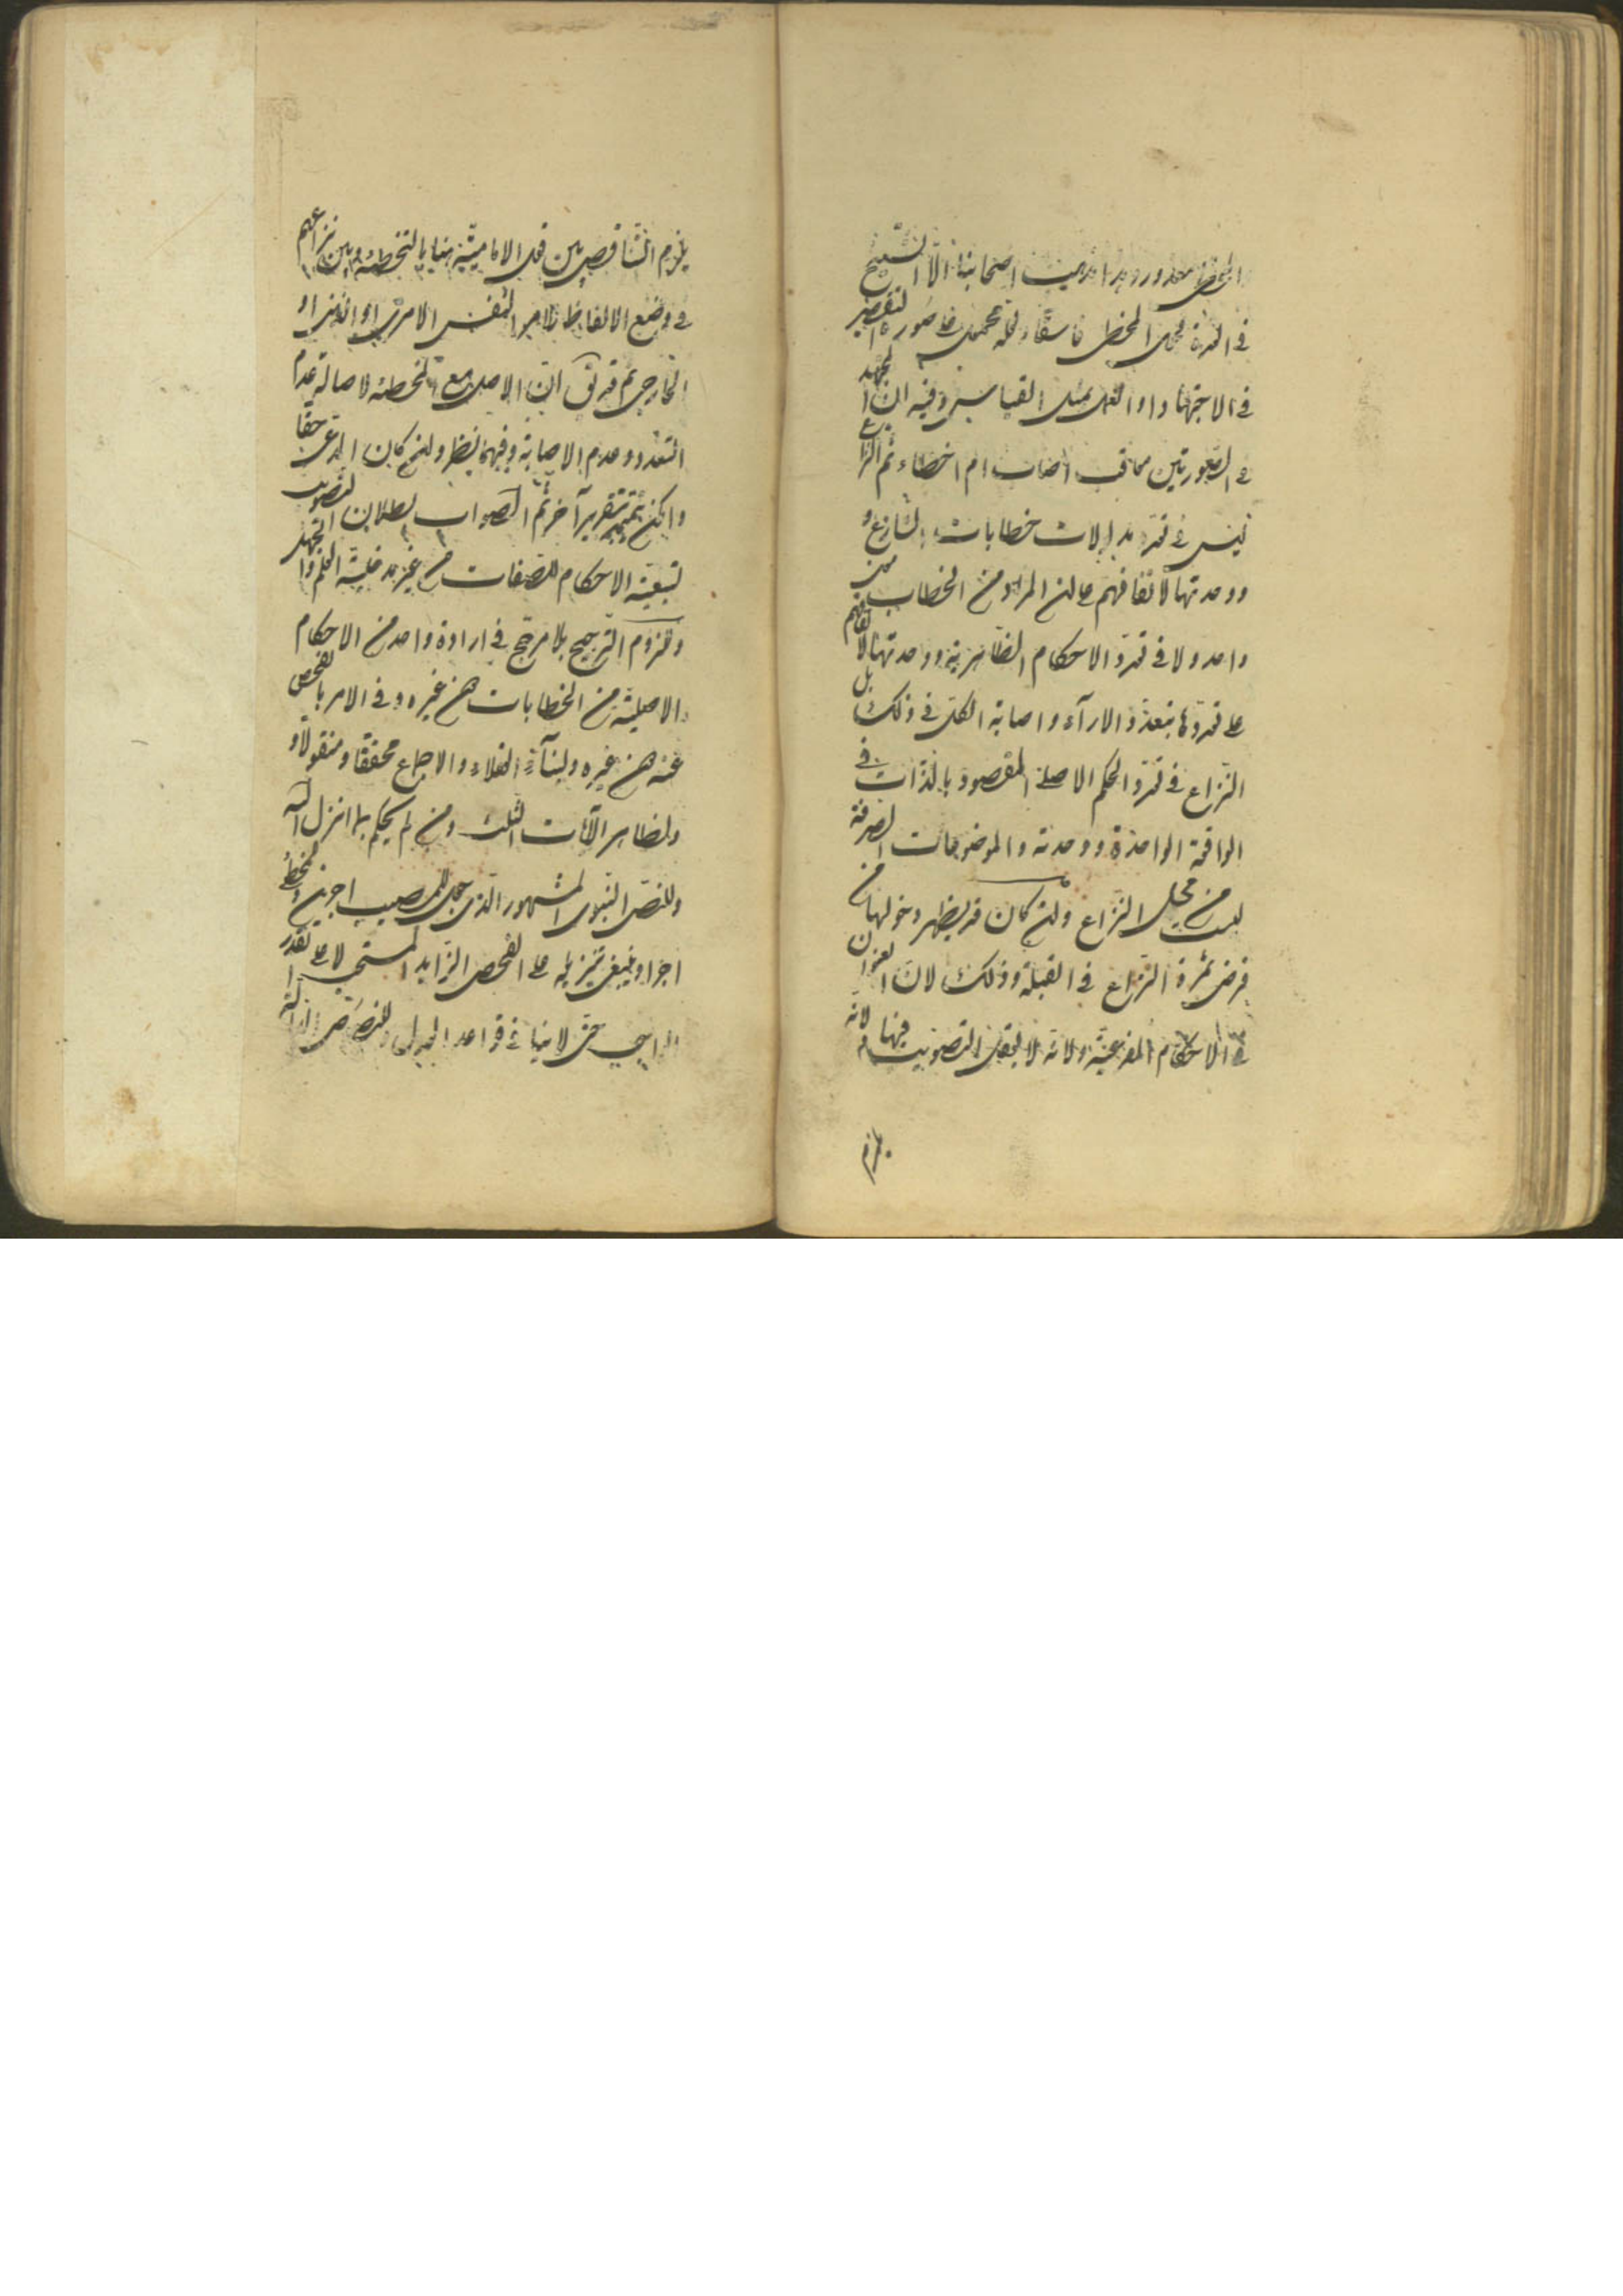 المخطئ معذور وهذا مذهب اصحابنا الّا الشيخ
في العدة فجعل المخطى فاسقا ولعله محمول على صورة التقصير
في الاجتهاد او العمل بمثل القياس وفيه ان المجتهد
في الصورتين معاقب اصاب ام اخطاء ثم النزاع
ليس في تعدد مدلولات خطابات الشارع
ووحدتها لاتفاقهم على ان المراد من الخطاب
واحد ولا في تعدد الاحكام الظاهرية ووحدتها لاتفاقهم
على تعددها بتعدد الاراء واصابة الكل في ذلك بل
النزاع في تعدد الحكم الاصلي المقصود بالذات في
الواقعة الواحدة ووحدته والموضوعات الصرفة
ليست من محل النزاع وان كان قد يظهر دخولها من
فرض ثمرة النزاع في القبلة وذلك لان العنوان
في الاحكام الفرعية ولانه لا يعقل التصويب فيها لانه
يلزم
يلزم التناقص بين قول الامامية بالتخطئة وبين نزاعهم
في وضع الالفاظ للامور النفس الامرية او الذهنى او
الخارجى ثم قد يق انّ الاصل مع المخطئة لاصالة عدم
التعدد وعدم الاصابة وفيهما نظر وان كان المدعى حقا
وامكن تتميمه بتقرير آخر ثم الصواب بطلان التصويب
لتبعية الاحكام للصفات من غير مدخلية العلم والجهل
ولزوم الترجيح بلا مرجح في ارادة واحد من الاحكام
الاصلية من الخطابات من غيره وفى الامر بالفحص
عنه من غيره ولبنآء العقلاء والاجماع محققا ومنقولا و
ولظاهر الآيات الثلث ومن لم يحكم بما انزل الله
وللنص النبوى المشهور الذى جعل للمصيب اجرين وللمخطئ
اجرا وينبغى تنزيله على الفحص الزايد المستحب لا على القدر
الواجب حتى لا ينافى قواعد العدل وللنصوص الدالة